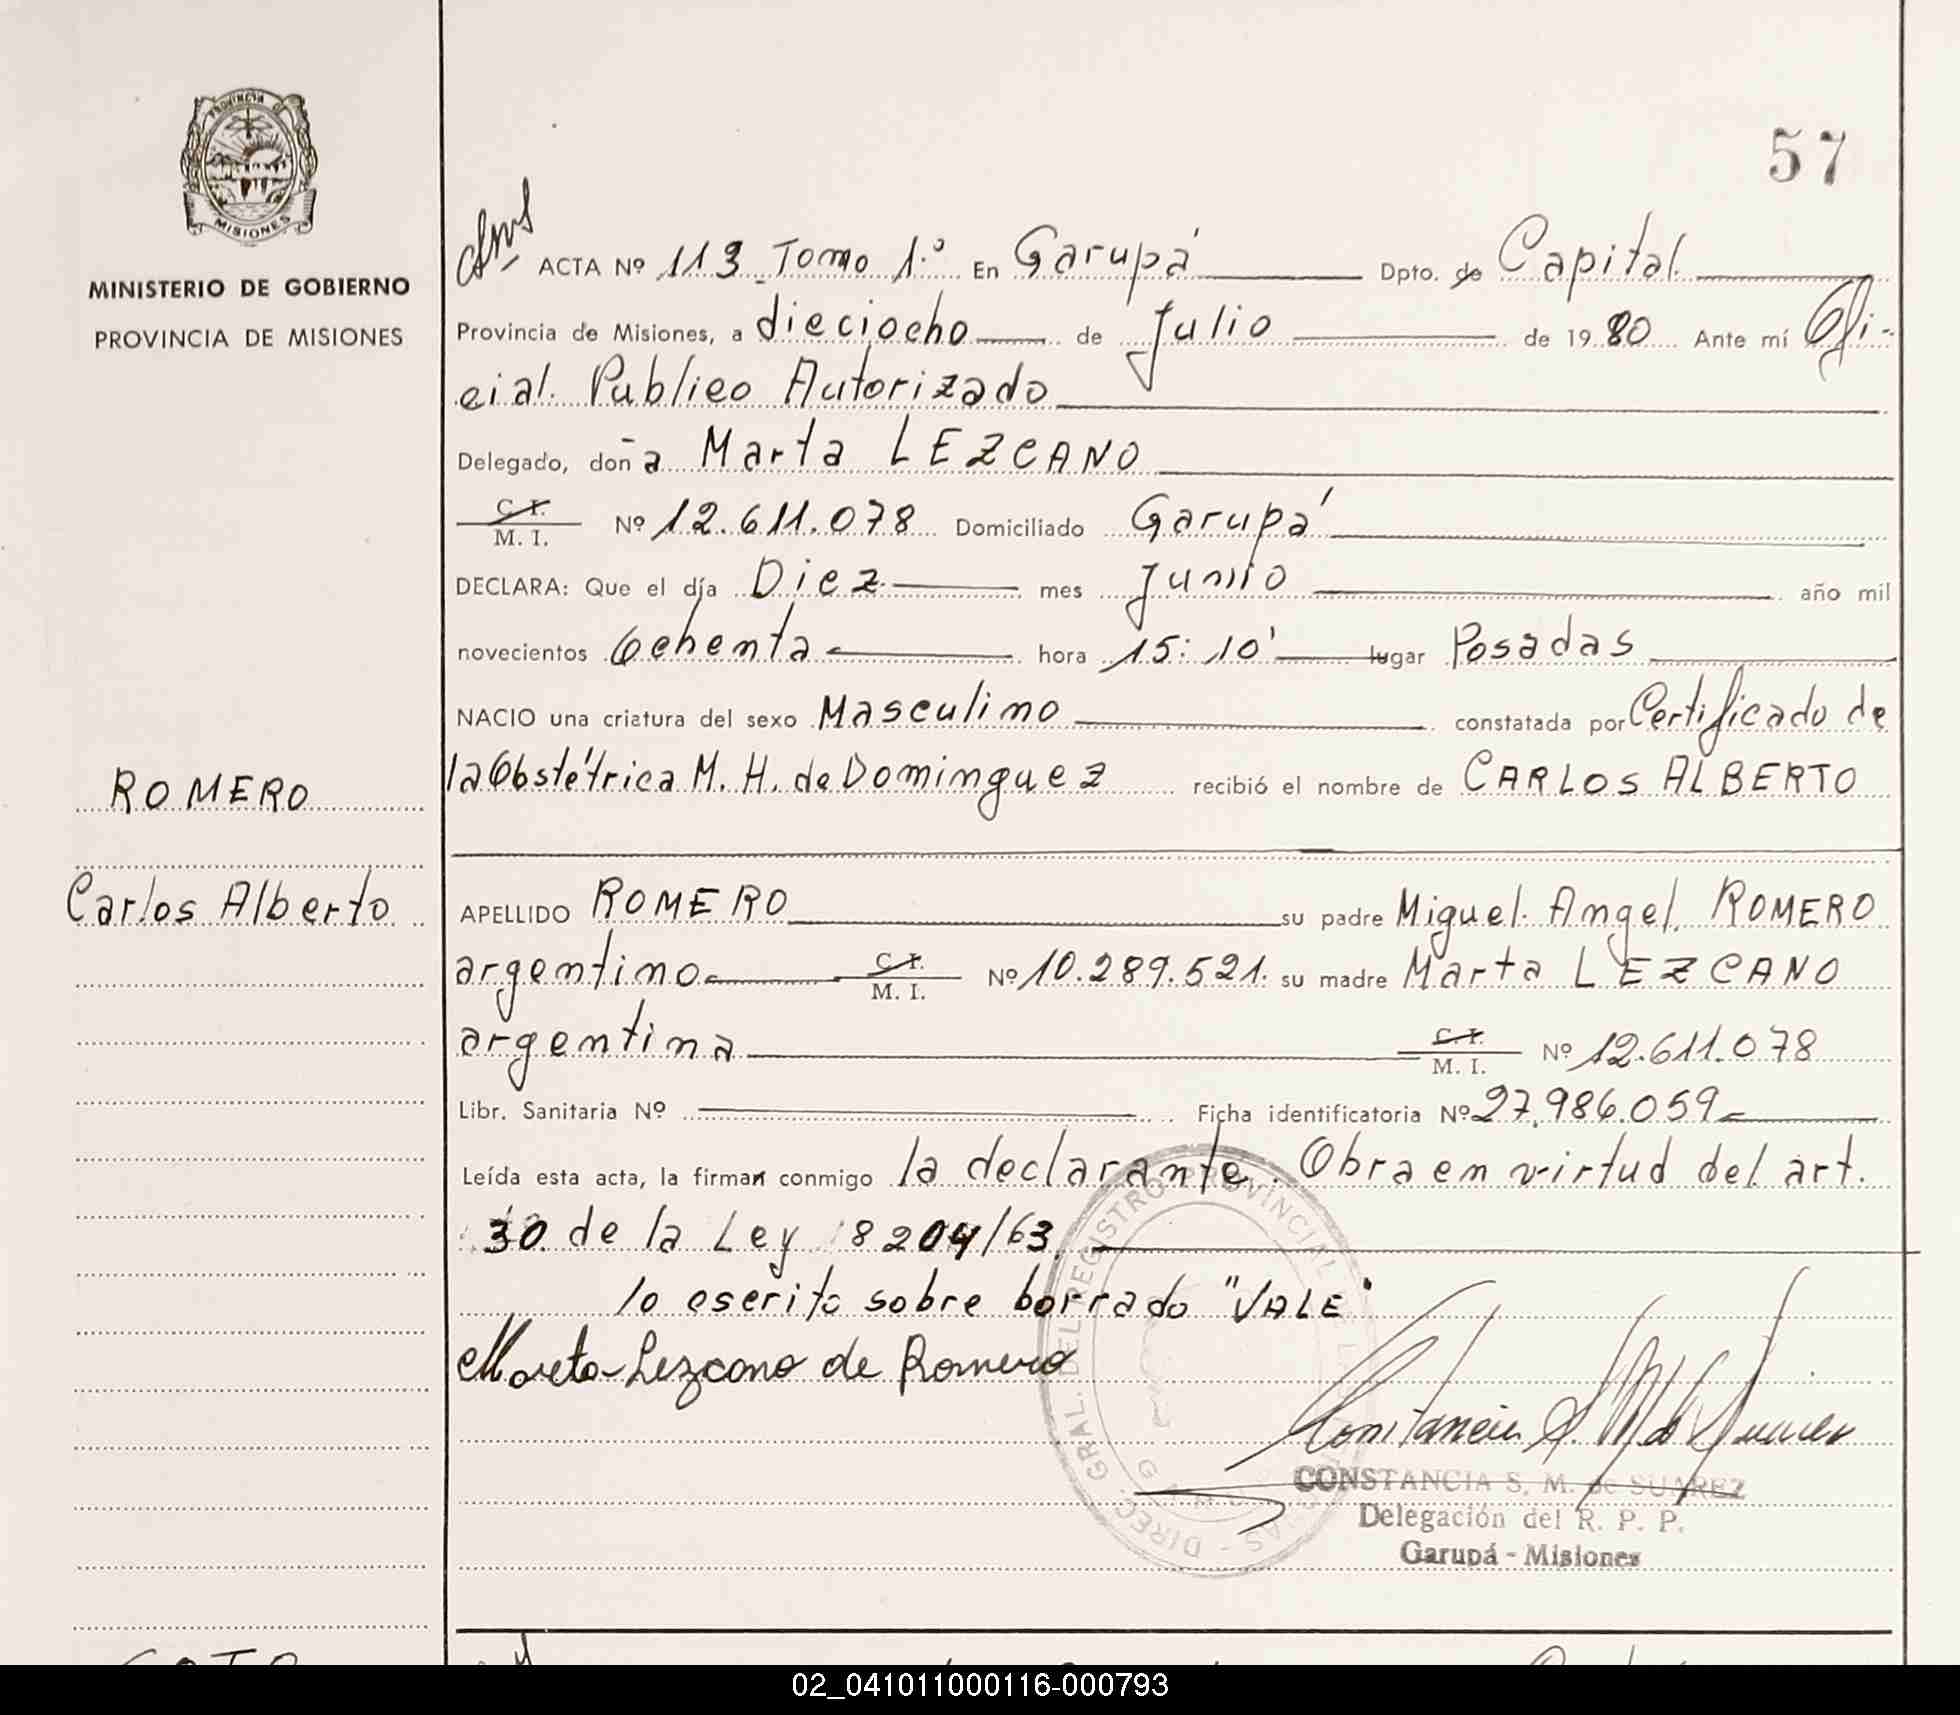 57
PROVINCIA DE
MISIONES
MINISTERIO DE GOBIERNO
PROVINCIA DE MISIONES
ROMERO
Carlos Alberto
ACTA Nº 113 Tomo 1º En Garupá Dpto. de Capital
Provincia de Misiones, a dieciocho de Julio de 1980 Ante mí Ofi-
cial Publico Autorizado
Delegado, doña Marta LEZCANO
C. I.
M. I. Nº 12.611.078 Domiciliado Garupá
DECLARA: Que el día Diez mes Junio año mil
novecientos Ochenta hora 15:10' lugar Posadas
NACIO una criatura del sexo Masculino constatada por Certificado de
la Obstétrica M. H. de Dominguez recibió el nombre de CARLOS ALBERTO
APELLIDO ROMERO su padre Miguel Angel ROMERO
argentino C. I.
M. I. Nº 10.289.521. su madre Marta LEZCANO
argentina C. I.
M. I. Nº 12.611.078
Libr. Sanitaria Nº Ficha identificatoria Nº 27.986.059
Leída esta acta, la firman conmigo la declarante. Obra en virtud del art.
30 de la Ley 8204/63.
lo escrito sobre borrado "VALE"
Marta Lezcano de Romero
CONSTANCIA S. M. de SUAREZ
Delegación del R. P. P.
Garupá - Misiones
DIREC. GRAL. DEL REGISTRO PROVINCIAL DE LAS
02_041011000116-000793